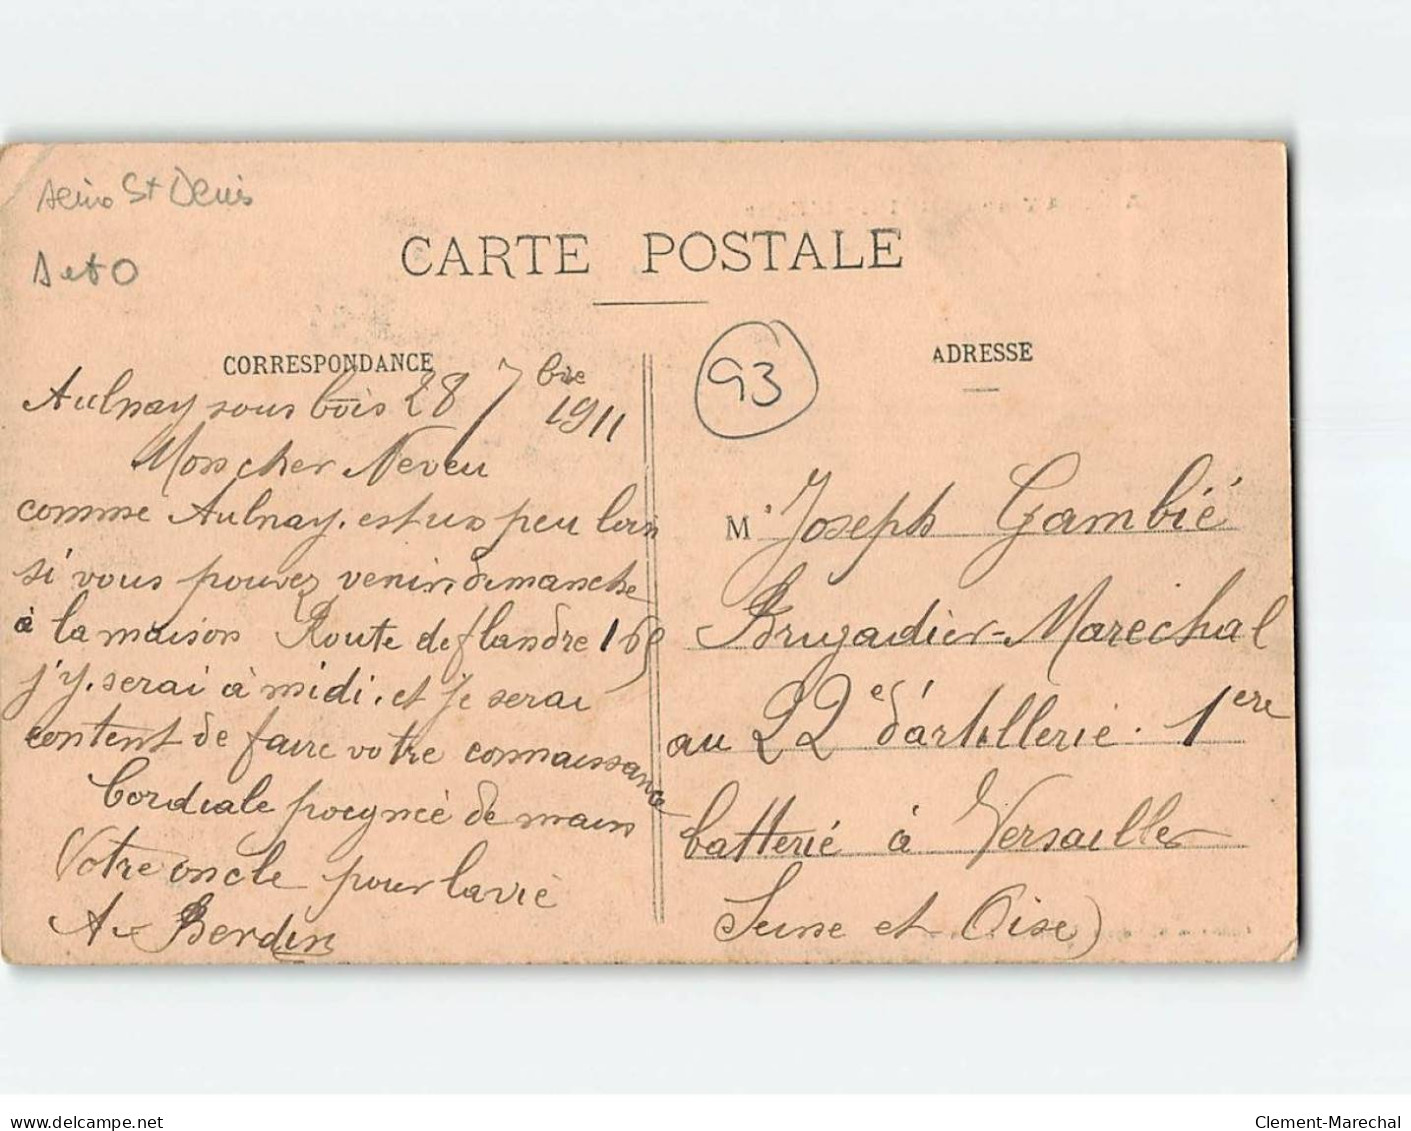 Seine St Denis
S et O
CARTE POSTALE
CORRESPONDANCE
Aulnay sous bois 28 7bre 1911
Mon cher Neveu
comme Aulnay. est un peu loin
si vous pouvez venir, dimanche
à la maison Route de flandre 169
j'y. serai à midi. et je serai
content de faire votre connaissance
Cordiale poignée de main
Votre oncle pour la vie
A Berdin
93
ADRESSE
M. Joseph Gambié
Brigadier-Marechal
au 22e d'artillerie. 1ere
batterie à Versailles
Seine et Oise)
www.delcampe.net
Clement-Marechal